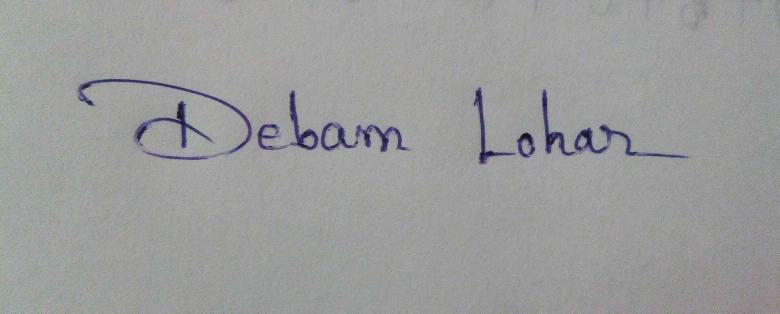 Debam Lohar